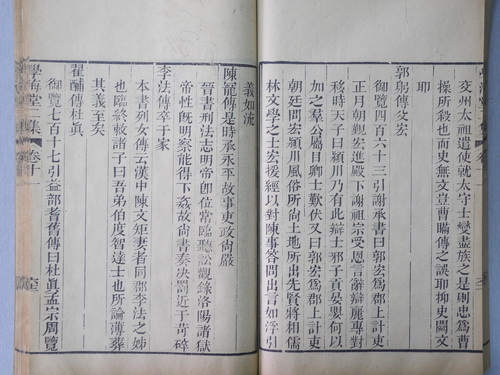 交州太祖遣使就太守士燮盡族之是則忠爲曹
操所殺也而史無文豈曹瞞傳之誤耶抑史闕文
耶
郭躬傳父宏
御覽四百六十三引謝承書曰郭宏爲郡上計吏
正月朝覲宏進殿下謝祖宗受恩言辭辯麗專對
移時天子曰潁川乃有此辯士邪子貢晏嬰何以
加之羣公屬目卿士歎伏又曰郭宏爲郡上計吏
朝廷問宏潁川風俗所尙土地所出先賢將相儒
林文學之士宏援經以對陳事答問出言如浮引
義如流
陳寵傳是時承永平故事吏政尙嚴
晉書刑法志明帝卽位常臨聽訟觀錄洛陽諸獄
帝性既明察能得下姦故尙書奏決罰近于苛碎
李法傳卒于家
本書列女傳云漢中陳文矩妻者同郡李法之姊
也臨終敕諸子曰吾弟伯度智達士也所論薄葬
其義至矣
翟酺傳杜眞
御覽七百十七引益部耆舊傳曰杜眞孟宗周覽
學海堂二集 卷十一